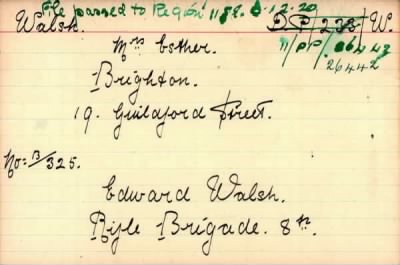 File passed to Region 11 5/2. 8.12.20
Walsh. D.P. 238/W.
11/PP/26442
26442
Mrs Esther.
Brighton.
19. Guildford Street.
No: B/325.
Edward Walsh.
Rifle Brigade. 8th.